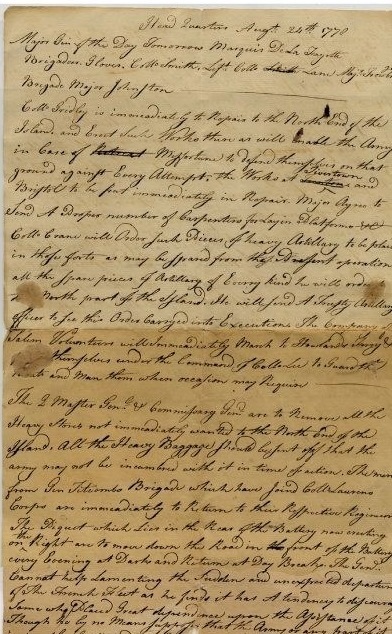 Head Quarters Augt 24th 1778
Major Gen of the Day Tomorrow Marquis De La Fayette
Brigadeer Glover, Collo Smith, Left Collo Lane, Majr
Brigade Major Johnston
Collo Gridley is immeadiately to Repair to the North End of the
Island and Erect Such Works there as will enable the Army
in Case of Misfortune to defend themselves on that
ground against Every Attempt, the Works at Tiverton and
Bristol to be put immeadiately in Repair. Major Ayres to
Send A Propper number of Carpenters for Layin platforms &c
Collo Crane will Order Such Pieces of heavy Artillary to be place
in those forts as may be Spared from the Present operation
all the Spare pieces of Artillary of Every kind he will order
North part of the Island. He will Send A Artillary
officer to See this Order Carryed into Execution. The Company
Salem Volunteers will Immeadiately March to Howlands Ferry &
themselves under the Command of Collo Lee to Guard the
Boats and Man them when occasion may Require
The Q Master Genl & Commissary Genl are to Remove all the
Heavy Stores not immeadiately wanted to the North End of the
Island. All the Heavy Baggage Should be Sent off that the
army may not be incumbred with it in time of action. The men
from Gen Titcombs Brigade which have Joind Collo Laurens
Corps are immeadiately to Return to their Respective Regimen
The Piquet which Lies in the Rear of the Battery now erecting
on the Right are to move down the Road in front of the Battery
every Evening at Dark and Return at Day Breake. The Genl
Cannot help Lamenting the Sudden and unexpected departure
of The French Fleet as he finds it has A tendency to discour
Some who placed Great dependence upon the Assistance of
Though he by no Means Suppose that the Army